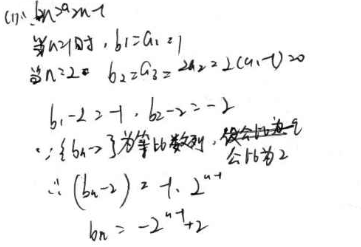 (1). bn=a2n-1
当n=1时, b1=a1=1
当n=2时 b2=a3=2a2=2(a1-1)=0
b1-2=-1, b2-2=-2
∴{bn-2}为等比数列, 公比为2
∴(bn-2)=-1·2^{n-1}
bn=-2^{n-1}+2